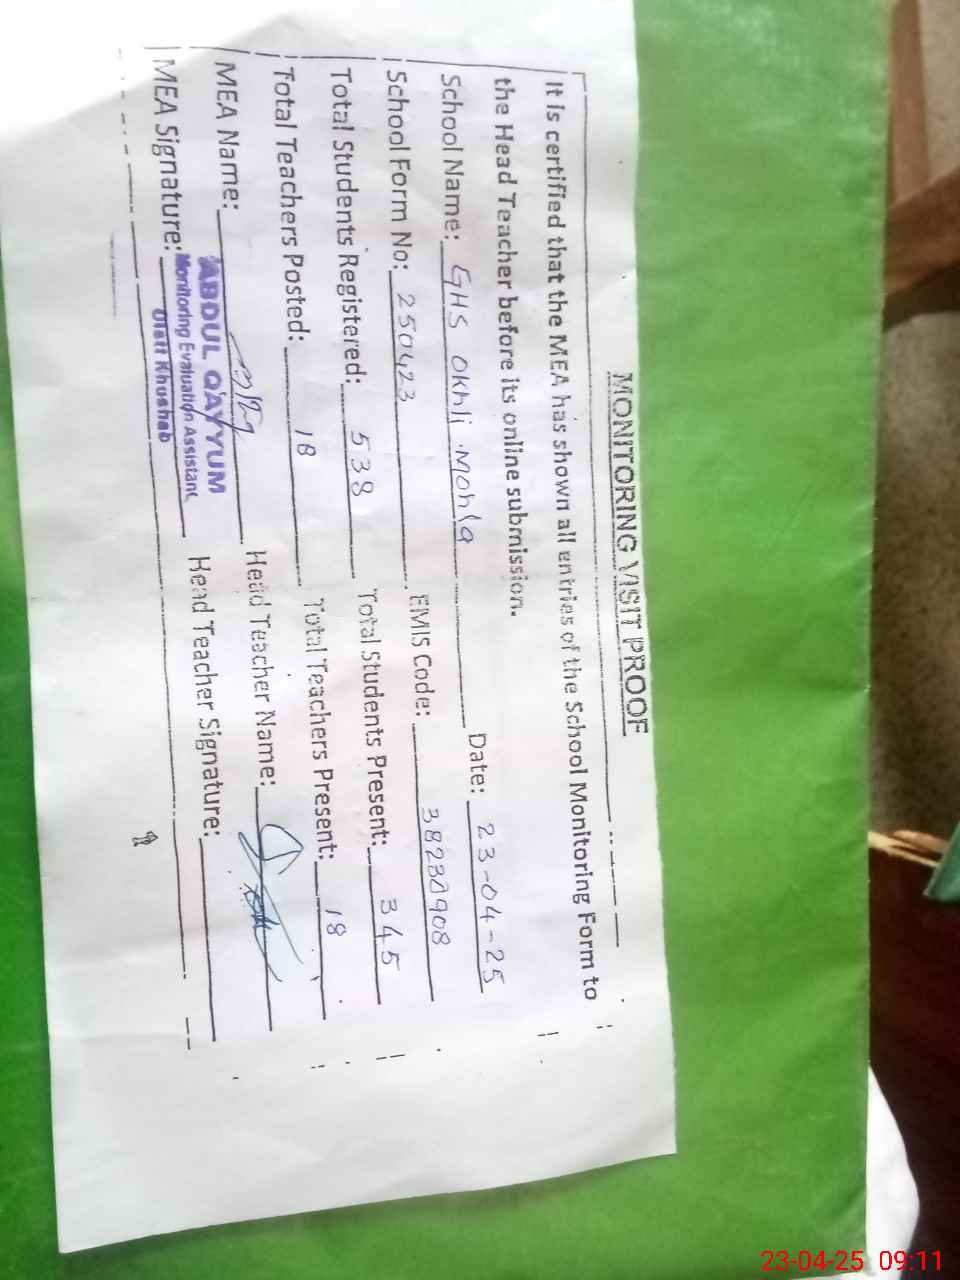 MONITORING VISIT PROOF
It is certified that the MEA has shown all entries of the School Monitoring Form to
the Head Teacher before its online submission.
School Name: GHS Okhli Mohla Date: 23-04-25
School Form No: 250423 EMIS Code: 38230908
Total Students Registered: 538 Total Students Present: 345
Total Teachers Posted: 18 Total Teachers Present: 18
MEA Name: ABDUL QAYYUM Head Teacher Name:
MEA Signature: Monitoring Evaluation Assistant Head Teacher Signature:
Distt Khushab
23-04-25 09:11